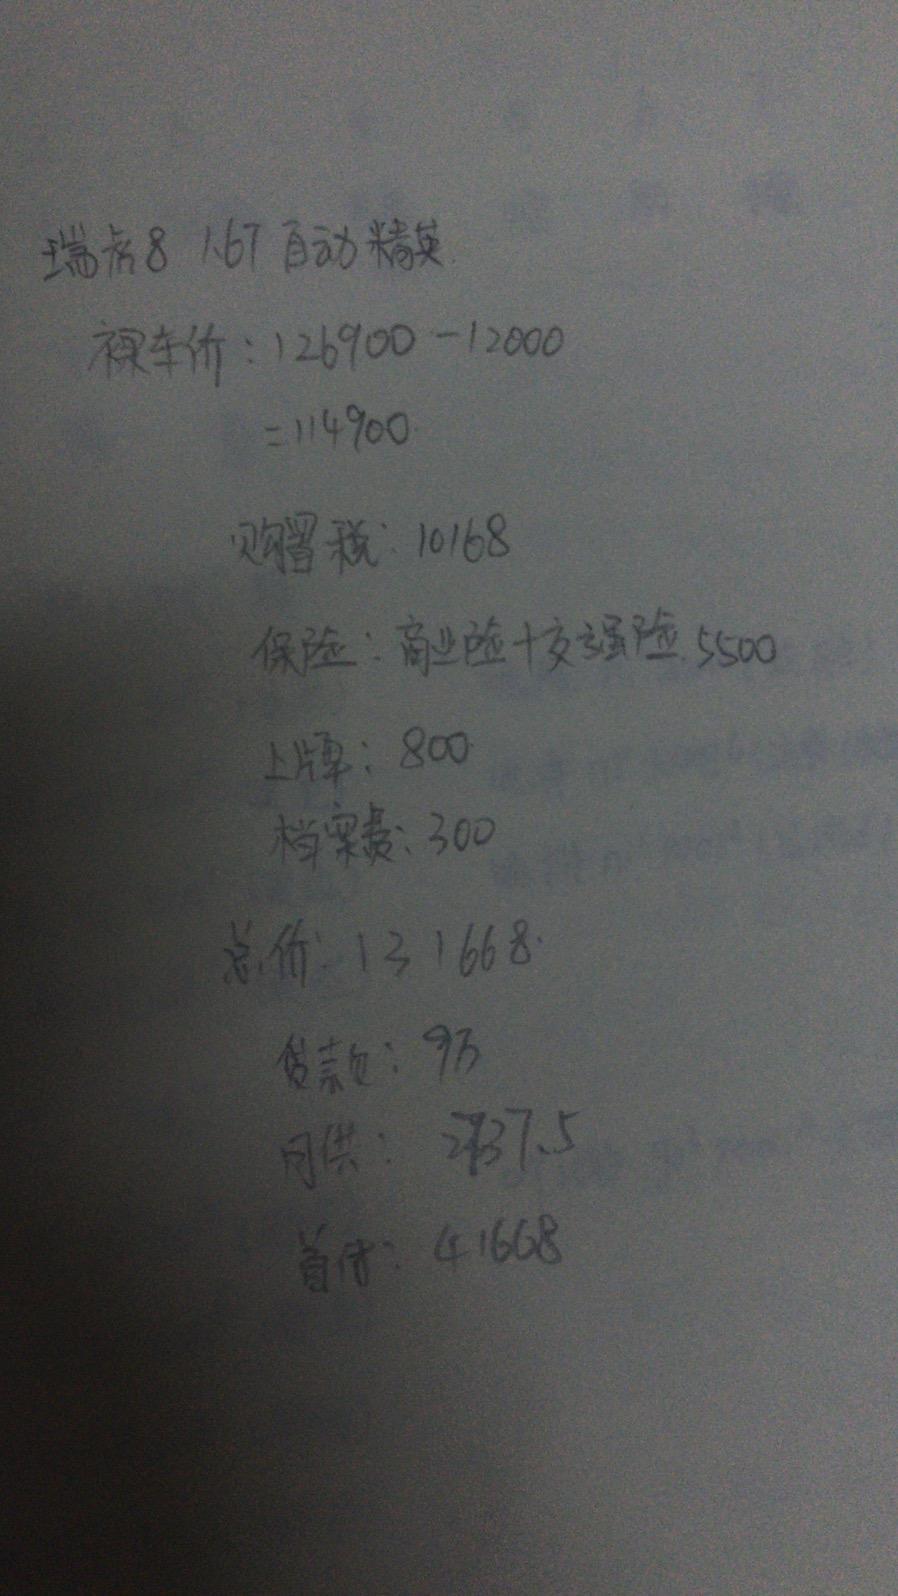 瑞虎8 1.6T 自动精英
裸车价:126900-12000
=114900
购置税:10168
保险:商业险+交强险 5500
上牌:800
档案费:300
总价:131668
贷款:9万
月供:2737.5
首付:41668